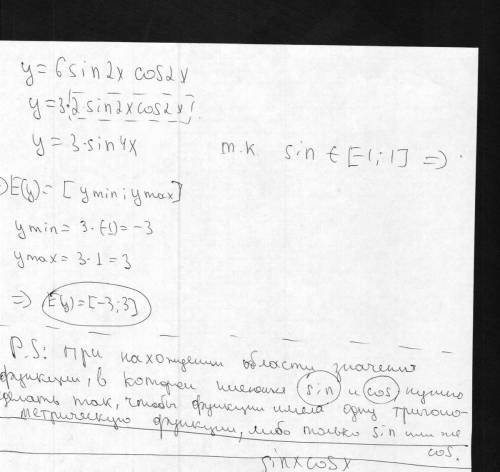 y=6sin2x cos2x
y=3·2·sin2xcos2x
y=3·sin4x т.к sin t∈[-1;1] =>
E(y)=[ymin;ymax]
ymin=3·(-1)=-3
ymax=3·1=3
=> E(y)=[-3;3]
P.S: При нахождении области значения
функции, в которой имеются sin и cos, нужно
сделать так, чтобы функции имела одну тригоно-
метрическую функции, либо только sin или же
cos.
sinxcosx